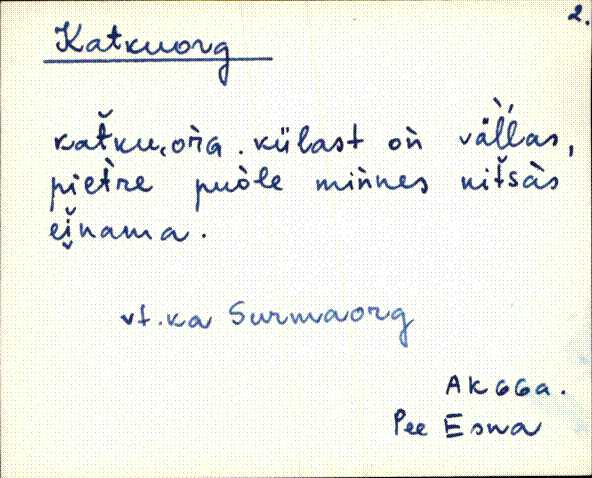 2.
Katkuorg
kat̆ku,òrɢ. külast oǹ väl̀'l̀as,
piet̀re puòle mìǹnes kit̆sàs
ei̯nama.
vt. ka Surmaorg
AK 66a.
Pee Esna